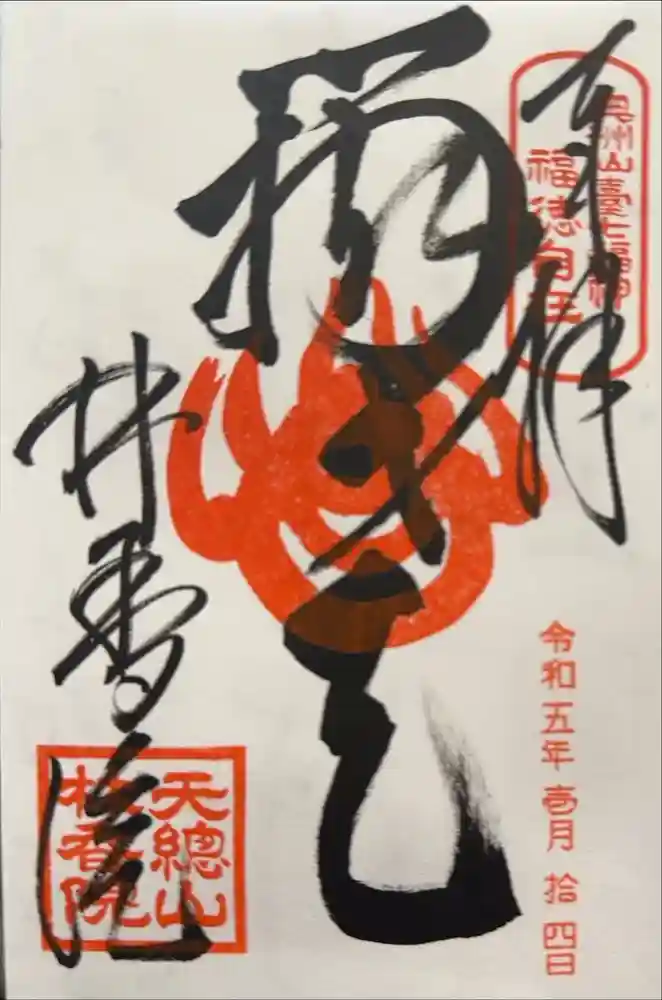 奉拝
奥州仙臺七福神
福徳自在
辨才天
令和五年壱月拾四日
林香院
天總山
林香院